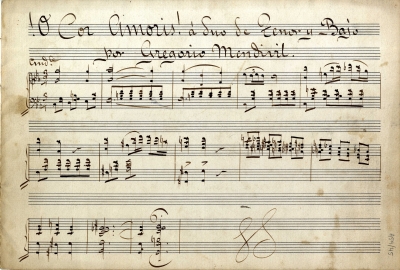 ¡O Cor Amoris! á duo de Tenor y Bajo
por Gregorio Mendivil.
And.te